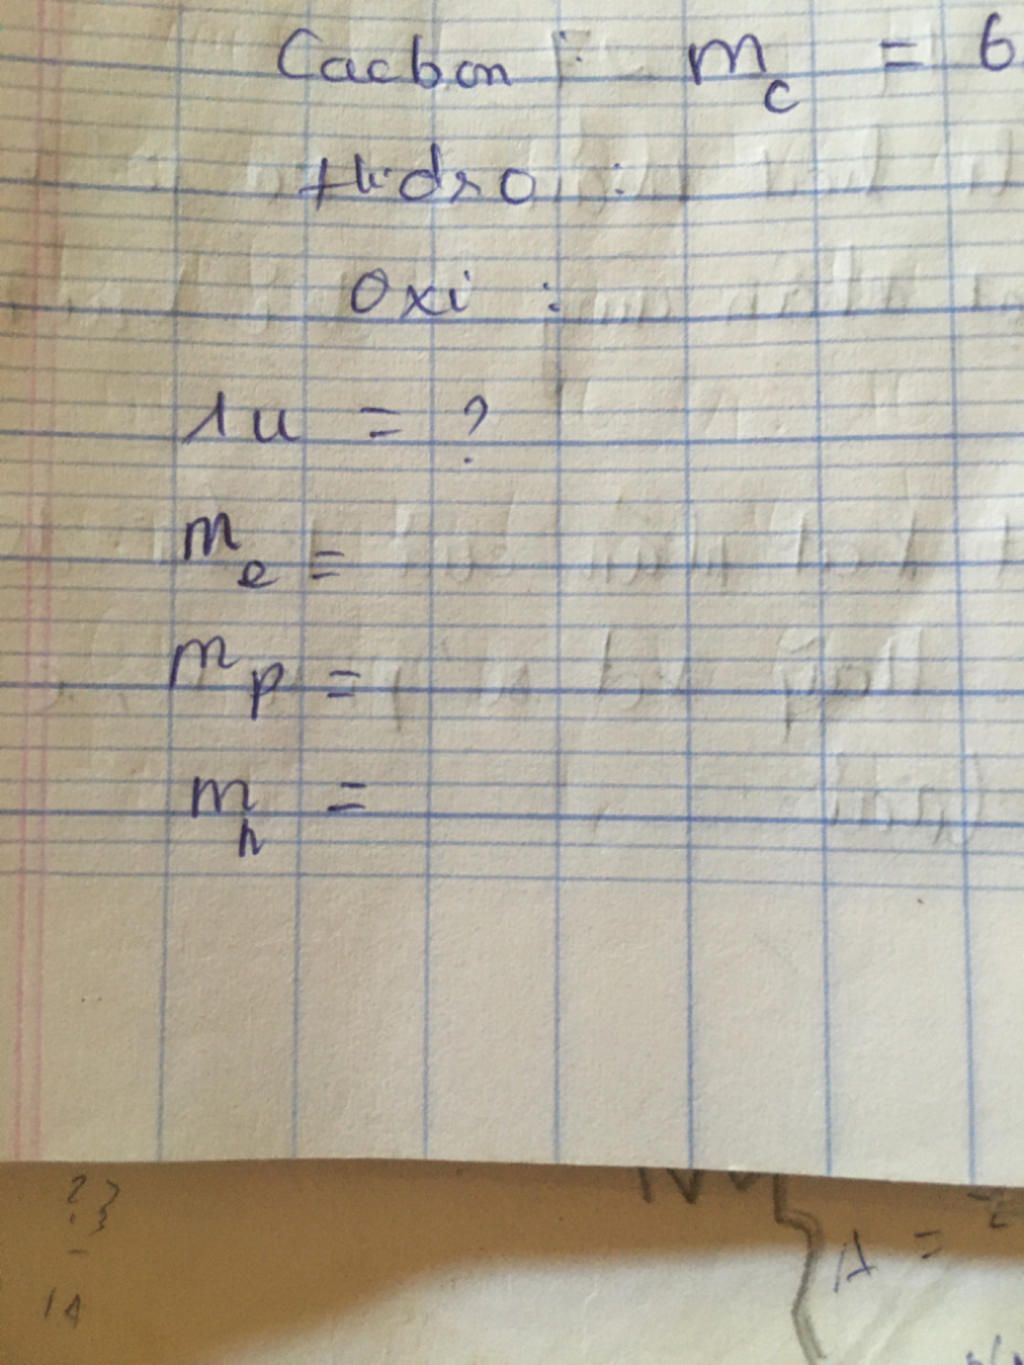 Cacbon : m_c = 6
Hidro :
Oxi :
1u = ?
m_e =
m_p =
m_n =
A =